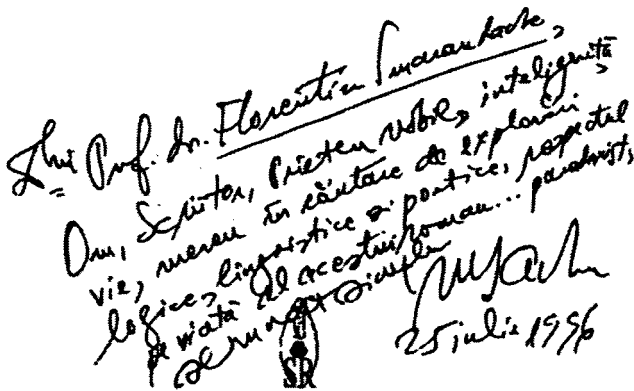 D-lui Prof. dr. Florentin Smarandache,
Om, Scriitor, Prieten nobil, inteligență
vie, mereu în căutare de explorări
logice, lingvistice și poetice, respectul
pe viață al acestui roman... paradoxist,
25 iulie 1996
SR